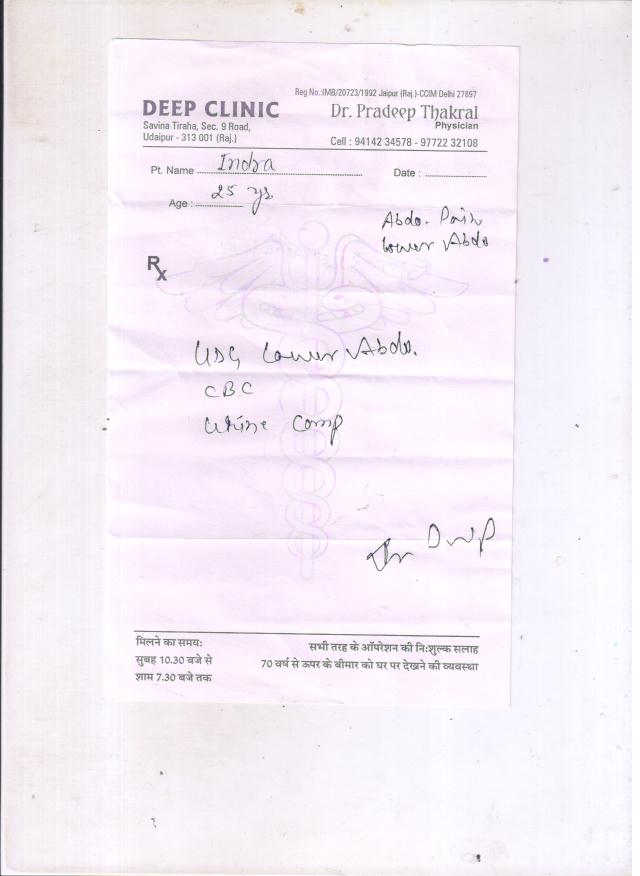 Reg No.:IMB/20723/1992 Jaipur (Raj.)-CCIM Delhi 27897
DEEP CLINIC
Dr. Pradeep Thakral
Physician
Savina Tiraha, Sec. 9 Road,
Udaipur - 313 001 (Raj.)
Cell : 94142 34578 - 97722 32108
Pt. Name Indra Date :
Age : 25 ys
Abdo. Pain
Lower Abdo
Rx
USG Lower Abdo.
CBC
Urine Comp
मिलने का समय:
सुबह 10.30 बजे से
शाम 7.30 बजे तक
सभी तरह के ऑपरेशन की नि:शुल्क सलाह
70 वर्ष से ऊपर के बीमार को घर पर देखने की व्यवस्था